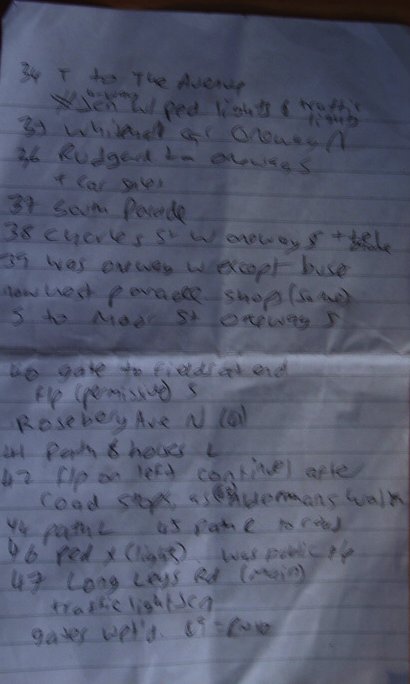 34 T to The Avenue
4 way
Jcn w ped lights & traffic
lights
35 Whitehall Gr Oneway N
36 Rudgard Ln oneway S
+ car sales
37 South Parade
38 Charles St W oneway S +
39 was oneway w except buses
now West parade shop (same)
S to Moor St oneway S
40 gate to field at end
f/p (permissive) S
Rosebery Ave N
41 Path & houses L
42 f/p on left continues after
road stops, as Aldermans Walk
44 path L 45 path R to road
46 ped x (light). was public f/p
47 Long Leys Rd (main)
traffic light Jcn
gates